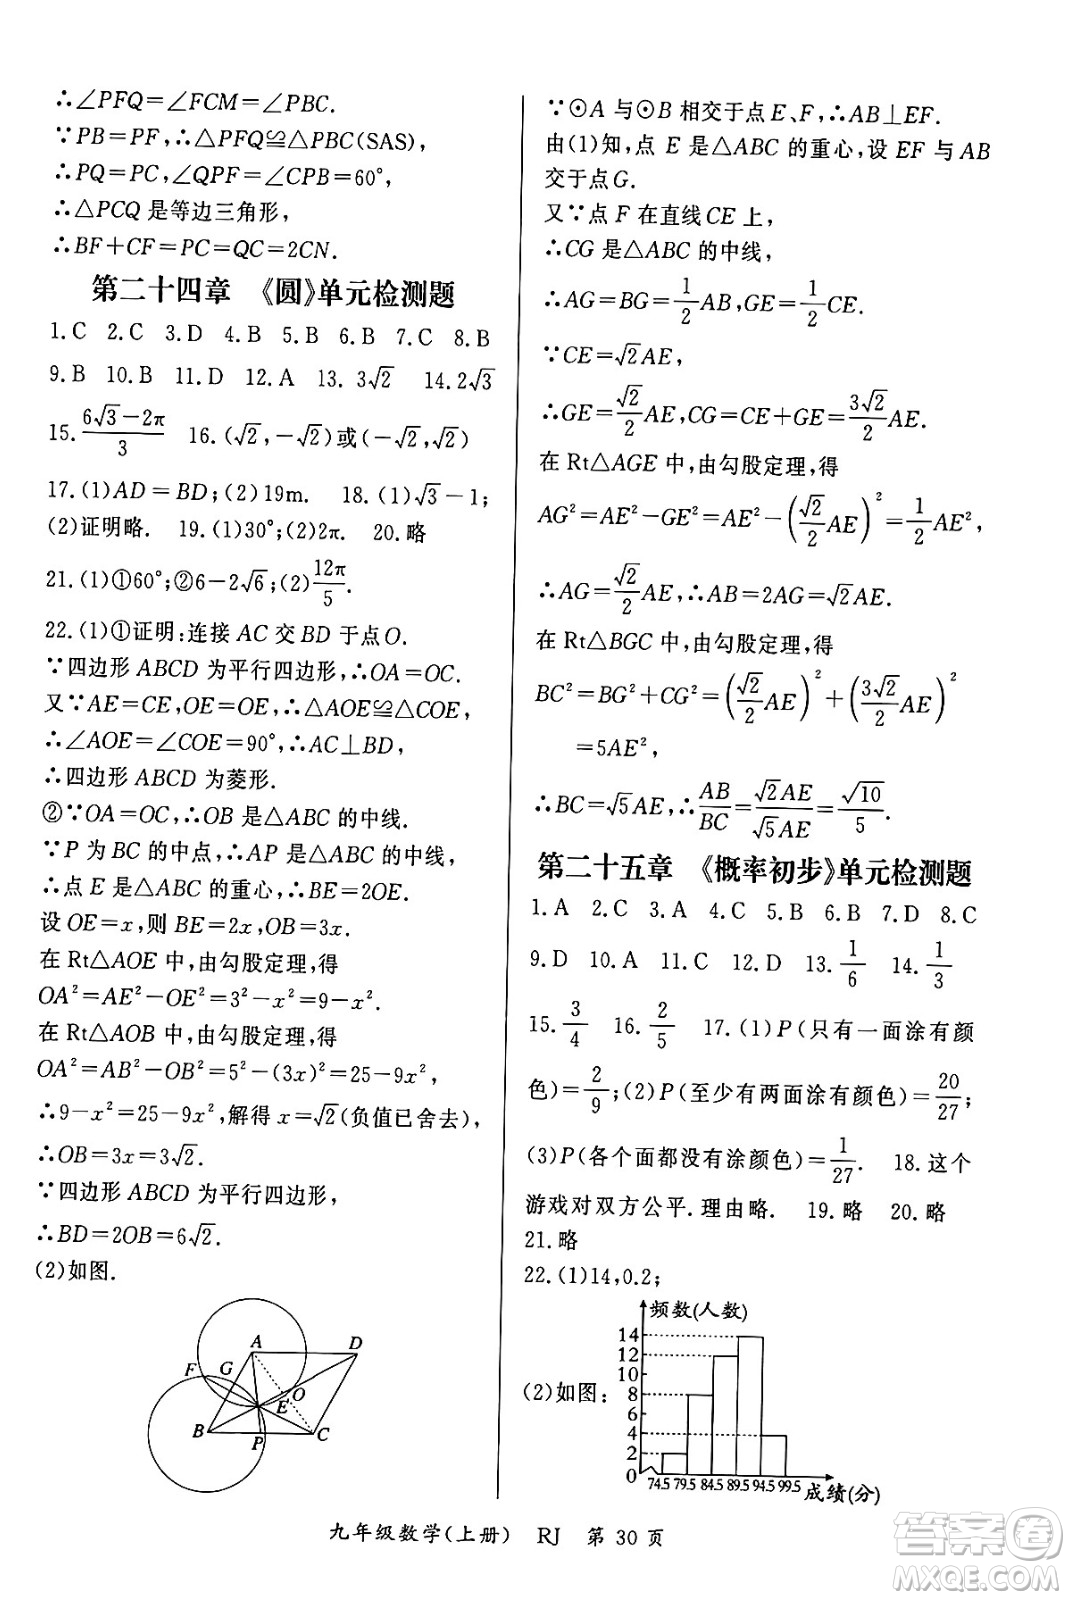 ∴∠PFQ=∠FCM=∠PBC.
∵PB=PF,∴△PFQ≌△PBC(SAS),
∴PQ=PC,∠QPF=∠CPB=60°,
∴△PCQ 是等边三角形,
∴BF+CF=PC=QC=2CN.
第二十四章 《圆》单元检测题
1.C 2.C 3.D 4.B 5.B 6.B 7.C 8.B
9.B 10.B 11.D 12.A 13. 3√2 14. 2√3
15. (6√3-2π)/3 16.(√2,-√2)或(-√2,√2)
17.(1)AD=BD;(2)19m. 18.(1)√3-1;
(2)证明略. 19.(1)30°;(2)2π. 20.略
21.(1)①60°;②6-2√6;(2)12π/5.
22.(1)①证明:连接 AC 交 BD 于点O.
∵四边形 ABCD 为平行四边形,∴OA=OC.
又∵AE=CE,OE=OE,∴△AOE≌△COE,
∴∠AOE=∠COE=90°,∴AC⊥BD,
∴四边形 ABCD 为菱形.
②∵OA=OC,∴OB 是△ABC 的中线.
∵P 为 BC 的中点,∴AP 是△ABC 的中线,
∴点 E 是△ABC 的重心,∴BE=2OE.
设 OE=x,则 BE=2x,OB=3x.
在 Rt△AOE 中,由勾股定理,得
OA²=AE²-OE²=3²-x²=9-x²,
在 Rt△AOB 中,由勾股定理,得
OA²=AB²-OB²=5²-(3x)²=25-9x²,
∴9-x²=25-9x²,解得 x=√2(负值已舍去),
∴OB=3x=3√2.
∵四边形 ABCD 为平行四边形,
∴BD=2OB=6√2.
(2)如图.
A
D
F
G
O
E
B
P
C
∵⊙A 与⊙B 相交于点 E、F,∴AB⊥EF.
由(1)知,点 E 是△ABC 的重心,设 EF 与 AB
交于点G.
又∵点 F 在直线 CE 上,
∴CG 是△ABC 的中线,
∴AG=BG=1/2 AB,GE=1/2 CE.
∵CE=√2AE,
∴GE=√2/2 AE,CG=CE+GE=3√2/2 AE.
在 Rt△AGE 中,由勾股定理,得
AG²=AE²-GE²=AE²-(√2/2 AE)²=1/2 AE²,
∴AG=√2/2 AE,∴AB=2AG=√2AE.
在 Rt△BGC 中,由勾股定理,得
BC²=BG²+CG²=(√2/2 AE)²+(3√2/2 AE)²
=5AE²,
∴BC=√5AE,∴AB/BC=√2AE/√5AE=√10/5.
第二十五章 《概率初步》单元检测题
1.A 2.C 3.A 4.C 5.B 6.B 7.D 8.C
9.D 10.A 11.C 12.D 13. 1/6 14. 1/3
15. 3/4 16. 2/5 17.(1)P(只有一面涂有颜
色)=2/9;(2)P(至少有两面涂有颜色)=20/27;
(3)P(各个面都没有涂颜色)=1/27. 18.这个
游戏对双方公平.理由略. 19.略 20.略
21.略
22.(1)14,0.2;
(2)如图:
频数(人数)
14
12
10
8
6
4
2
0
74.5 79.5 84.5 89.5 94.5 99.5
成绩(分)
九年级数学(上册) RJ 第 30 页
作业精灵
MXQE.COM